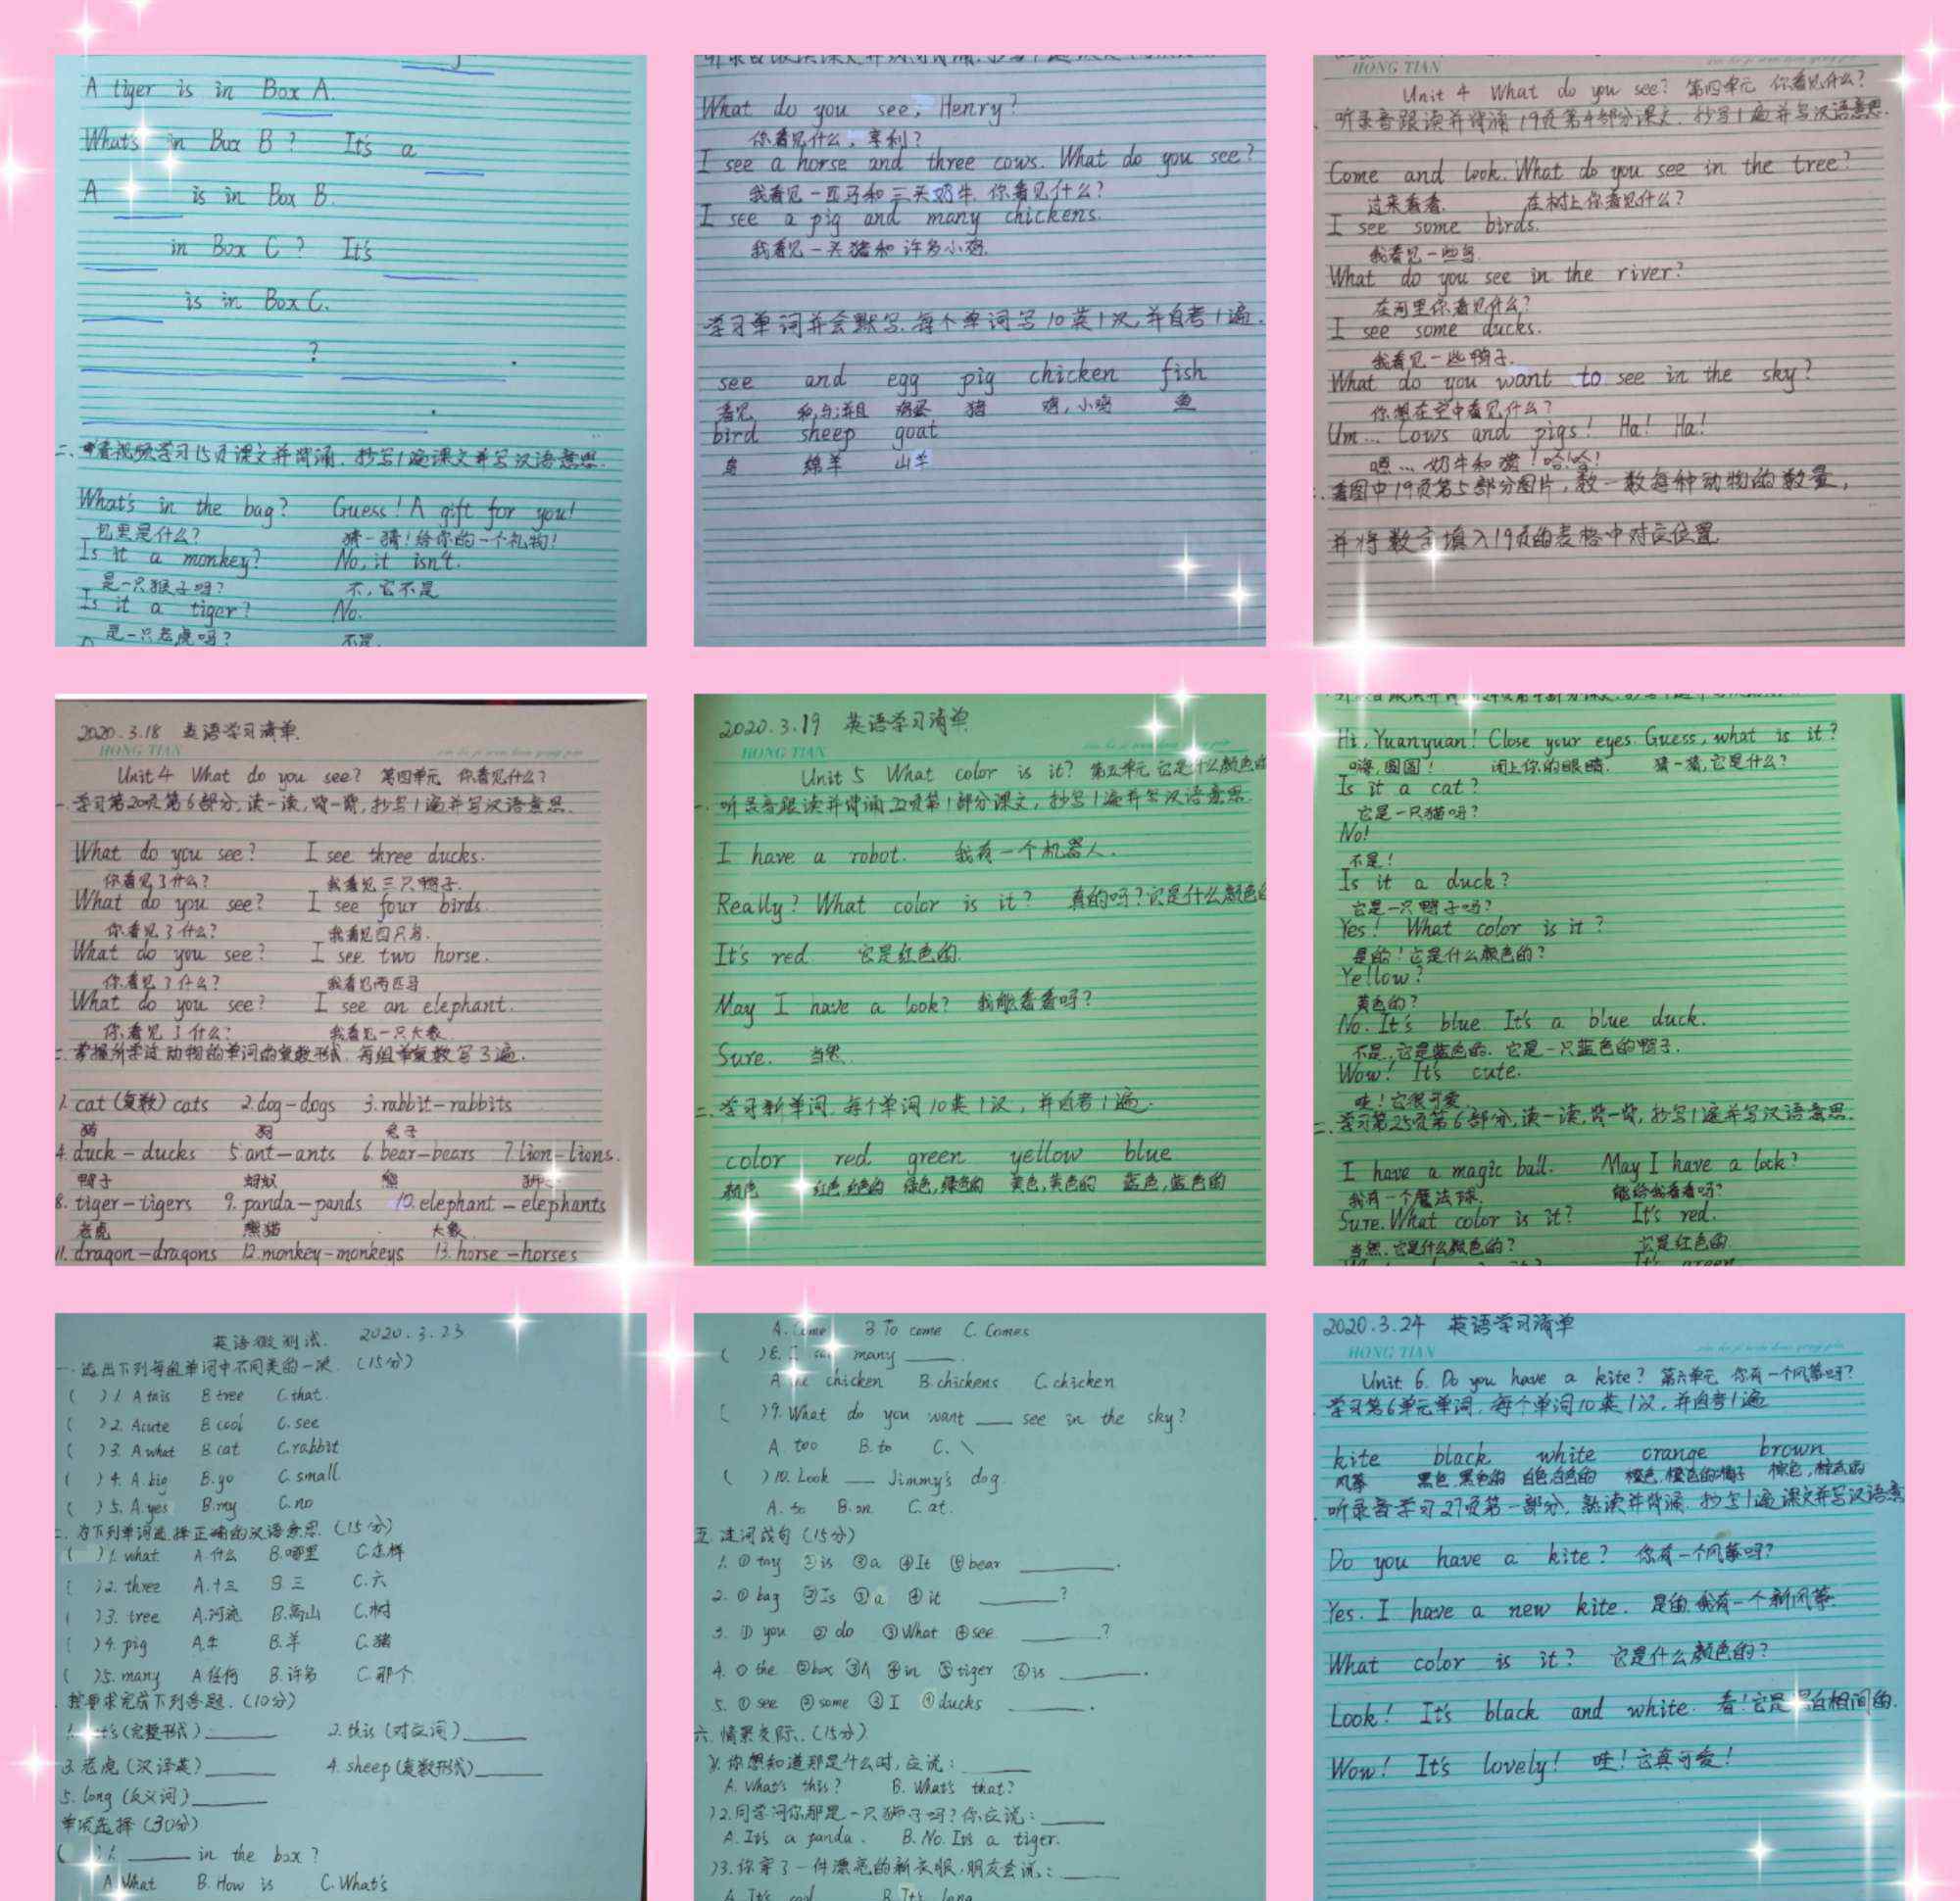 A tiger is in Box A.
What's in Box B? It's a
A is in Box B.
in Box C? It's
is in Box C.
?
二、看视频学习15页课文并背诵.抄写1遍课文并写汉语意思.
What's in the bag? Guess! A gift for you!
包里是什么? 猜一猜!给你的一个礼物!
Is it a monkey? No, it isn't.
是一只猴子吗? 不,它不是
Is it a tiger? No.
是一只老虎吗? 不是.
What do you see, Henry?
你看见什么,亨利?
I see a horse and three cows. What do you see?
我看见一匹马和三头奶牛.你看见什么?
I see a pig and many chickens.
我看见一头猪和许多小鸡.
学习单词并会默写.每个单词写10英1汉,并自考1遍.
see and egg pig chicken fish
看见 和,与;并且 鸡蛋 猪 鸡,小鸡 鱼
bird sheep goat
鸟 绵羊 山羊
HONG TIAN
Unit 4 What do you see? 第四单元 你看见什么?
听录音跟读并背诵19页第4部分课文.抄写1遍并写汉语意思.
Come and look. What do you see in the tree?
过来看看. 在树上你看见什么?
I see some birds.
我看见一些鸟.
What do you see in the river?
在河里你看见什么?
I see some ducks.
我看见一些鸭子.
What do you want to see in the sky?
你想在空中看见什么?
Um... Cows and pigs! Ha! Ha!
嗯...奶牛和猪!哈!哈!
看图中19页第5部分图片,数一数每种动物的数量,
并将数字填入19页的表格中对应位置
2020.3.18 英语学习清单.
HONG TIAN
Unit 4 What do you see? 第四单元 你看见什么?
一.学习第20页第6部分,读一读,背一背,抄写1遍并写汉语意思.
What do you see? I see three ducks.
你看见了什么? 我看见三只鸭子.
What do you see? I see four birds.
你看见了什么? 我看见四只鸟.
What do you see? I see two horse.
你看见了什么? 我看见两匹马
What do you see? I see an elephant.
你看见了什么? 我看见一只大象.
二.掌握所学过动物的单词的复数形式.每组单复数写3遍.
1. cat (复数) cats 2.dog-dogs 3.rabbit-rabbits
猫 狗 兔子
4. duck-ducks 5.ant-ants 6.bear-bears 7.lion-lions.
鸭子 蚂蚁 熊 狮子
8. tiger-tigers 9.panda-pands 10.elephant-elephants
老虎 熊猫 大象
11. dragon-dragons 12.monkey-monkeys 13.horse-horses
2020.3.19 英语学习清单
HONG TIAN
Unit 5 What color is it? 第五单元 它是什么颜色的
一.听录音跟读并背诵22页第1部分课文,抄写1遍并写汉语意思.
I have a robot. 我有一个机器人.
Really? What color is it? 真的吗?它是什么颜色的
It's red. 它是红色的.
May I have a look? 我能看看吗?
Sure. 当然.
二.学习新单词.每个单词10英1汉,并自考1遍.
color red green yellow blue
颜色 红色,红色的 绿色,绿色的 黄色,黄色的 蓝色,蓝色的
Hi, Yuanyuan! Close your eyes. Guess, what is it?
嗨,圆圆! 闭上你的眼睛. 猜一猜,它是什么?
Is it a cat?
它是一只猫吗?
No!
不是!
Is it a duck?
它是一只鸭子吗?
Yes! What color is it?
是的!它是什么颜色的?
Yellow?
黄色的?
No. It's blue. It's a blue duck.
不是,它是蓝色的.它是一只蓝色的鸭子.
Wow! It's cute.
哇!它很可爱.
二.学习第25页第6部分,读一读,背一背,抄写1遍并写汉语意思.
I have a magic ball. May I have a look?
我有一个魔法球. 能给我看看吗?
Sure. What color is it? It's red.
当然.它是什么颜色的? 它是红色的.
It's green
英语微测试. 2020.3.23
一.选出下列每组单词中不同类的一项.(15分)
( )1. A this B tree C.that.
( )2. A cute B cool C. see
( )3. A.what B.cat C.rabbit
( )4. A. big B.go C. small
( )5. A.yes B.my C.no
二.为下列单词选择正确的汉语意思.(15分)
( )1. what A.什么 B.哪里 C.怎样
( )2. three A.十三 B.三 C.六
( )3. tree A.河流 B.高山 C.树
( )4. pig A.牛 B.羊 C.猪
( )5. many A.任何 B.许多 C.那个
按要求完成下列各题.(10分)
1. it's (完整形式): 2. this (对应词)
3. 老虎 (汉译英) 4. sheep (复数形式)
5. long (反义词)
单项选择 (30分)
( )1. in the box?
A What B. How is C. What's
A. Come B To come C. Comes
( )8. I see many .
A. the chicken B.chickens C.chicken
( )9. What do you want see in the sky?
A. too B. to C. \
( )10. Look Jimmy's dog.
A. so B. on C. at.
五.连词成句 (15分)
1. ① toy ② is ③ a ④ It ⑤ bear .
2. ① bag ② Is ③ a ④ it ?
3. ① you ② do ③ What ④ see ?
4. ① the ② box ③ A ④ in ⑤ tiger ⑥ is .
5. ① see ② some ③ I ④ ducks .
六.情景交际.(15分)
)1.你想知道那是什么时,应说:
A. What's this? B. What's that?
)2.同学问你那是一只狮子吗?你应说:
A. It's a panda. B. No. It's a tiger.
)3.你穿了一件漂亮的新衣服,朋友会说:
A. It's cool B. It's long
2020.3.24 英语学习清单
HONG TIAN
Unit 6. Do you have a kite? 第六单元 你有一个风筝吗?
学习第6单元单词,每个单词10英1汉,并自考1遍
kite black white orange brown
风筝 黑色,黑色的 白色,白色的 橙色,橙色的,橘子 棕色,棕色的
听录音学习27页第一部分,熟读并背诵.抄写1遍课文并写汉语意
Do you have a kite? 你有一个风筝吗?
Yes. I have a new kite. 是的.我有一个新风筝.
What color is it? 它是什么颜色的?
Look! It's black and white. 看!它是黑白相间的.
Wow! It's lovely! 哇!它真可爱!